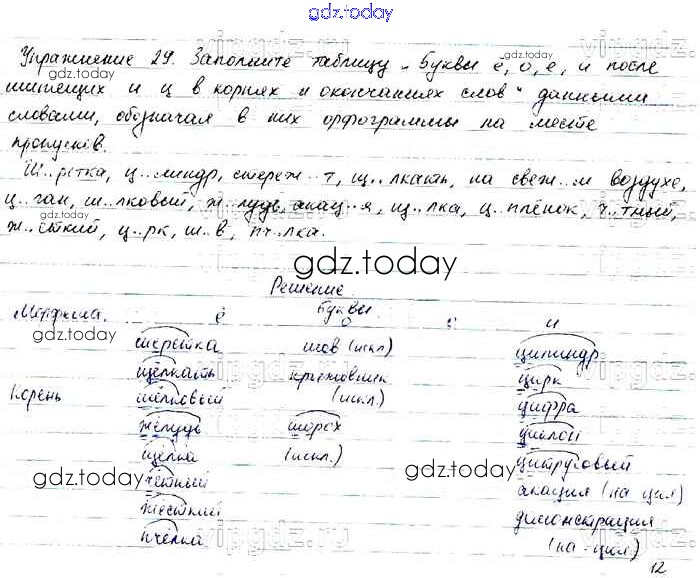 gdz.today
Упражнение 29. Заполните таблицу „Буквы ё, о, е, и после
gdz.today
шипящих и ц в корнях и окончаниях слов“ данными
словами, обозначая в них орфограммы на месте
пропусков.
Ш..рстка, ц..линдр, стереж..т, щ..лкать, на свеж..м воздухе,
ц..ган, ш..лковый, ж..лудь, акац..я, щ..лка, ц..плёнок, ч..тный,
gdz.today
ж..сткий, ц..рк, ш..в, пч..лка.
gdz.today
Решение
Морфема. Буквы
ё о е и
gdz.today
шёрстка шов (искл) цилиндр
щёлкать крыжовник цирк
Корень шёлковый (искл.) цифра
жёлудь шорох
щёлка (искл.) цитрусовый
gdz.today gdz.today
чётный акация (на ция)
жёсткий демонстрация
пчёлка (на -ция)
12